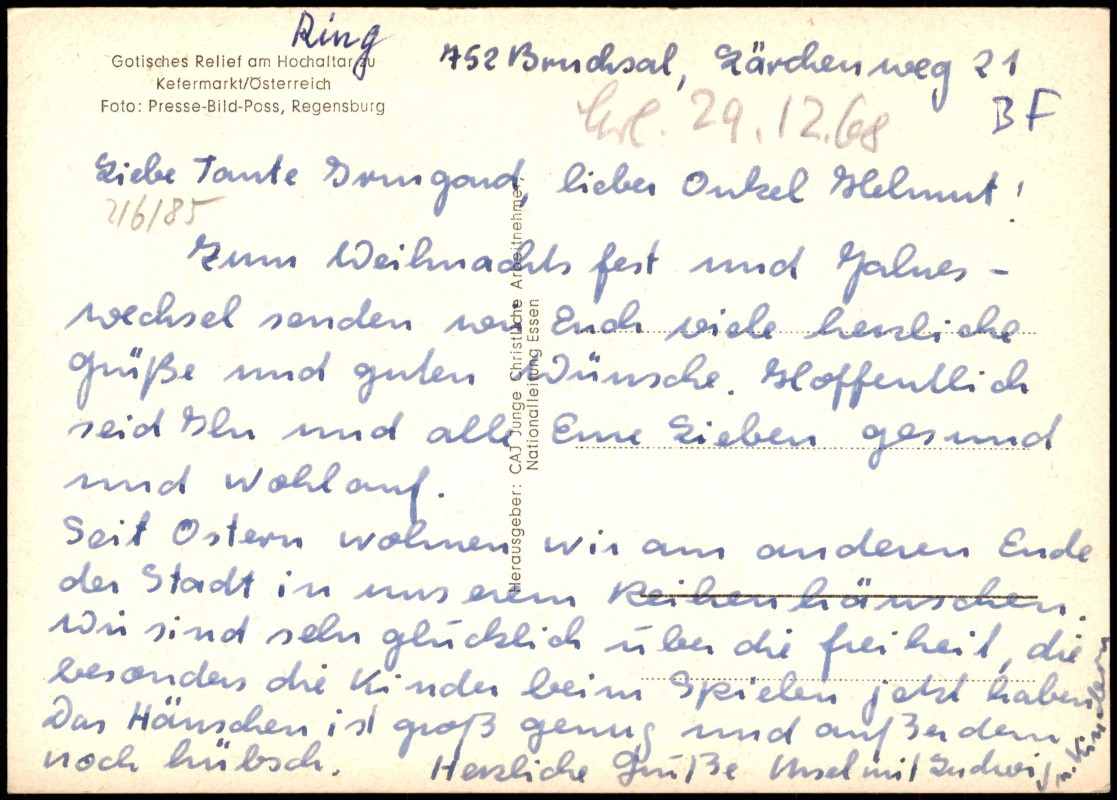 Ring
Gotisches Relief am Hochaltar zu
Kefermarkt/Österreich
Foto: Presse-Bild-Poss, Regensburg
752 Bruchsal, Lärchenweg 21
BF
Erl. 29.12.68
Liebe Tante Irmgard, lieber Onkel Helmut!
216/85
Zum Weihnachtsfest und Jahres-
wechsel senden wir Euch viele herzliche
Grüße und guten Wünsche. Hoffentlich
seid Ihr und alle Eure Lieben gesund
und wohlauf.
Seit Ostern wohnen wir am anderen Ende
der Stadt in unserem Reihenhäuschen.
Wir sind sehr glücklich über die Freiheit, die
besonders die Kinder beim Spielen jetzt haben
Das Häuschen ist groß genug und außerdem
noch hübsch. Herzliche Grüße Ursel mit Ludwig
u. Kindern
Herausgeber: CAJ Junge Christliche Arbeitnehmer,
Nationalleitung Essen